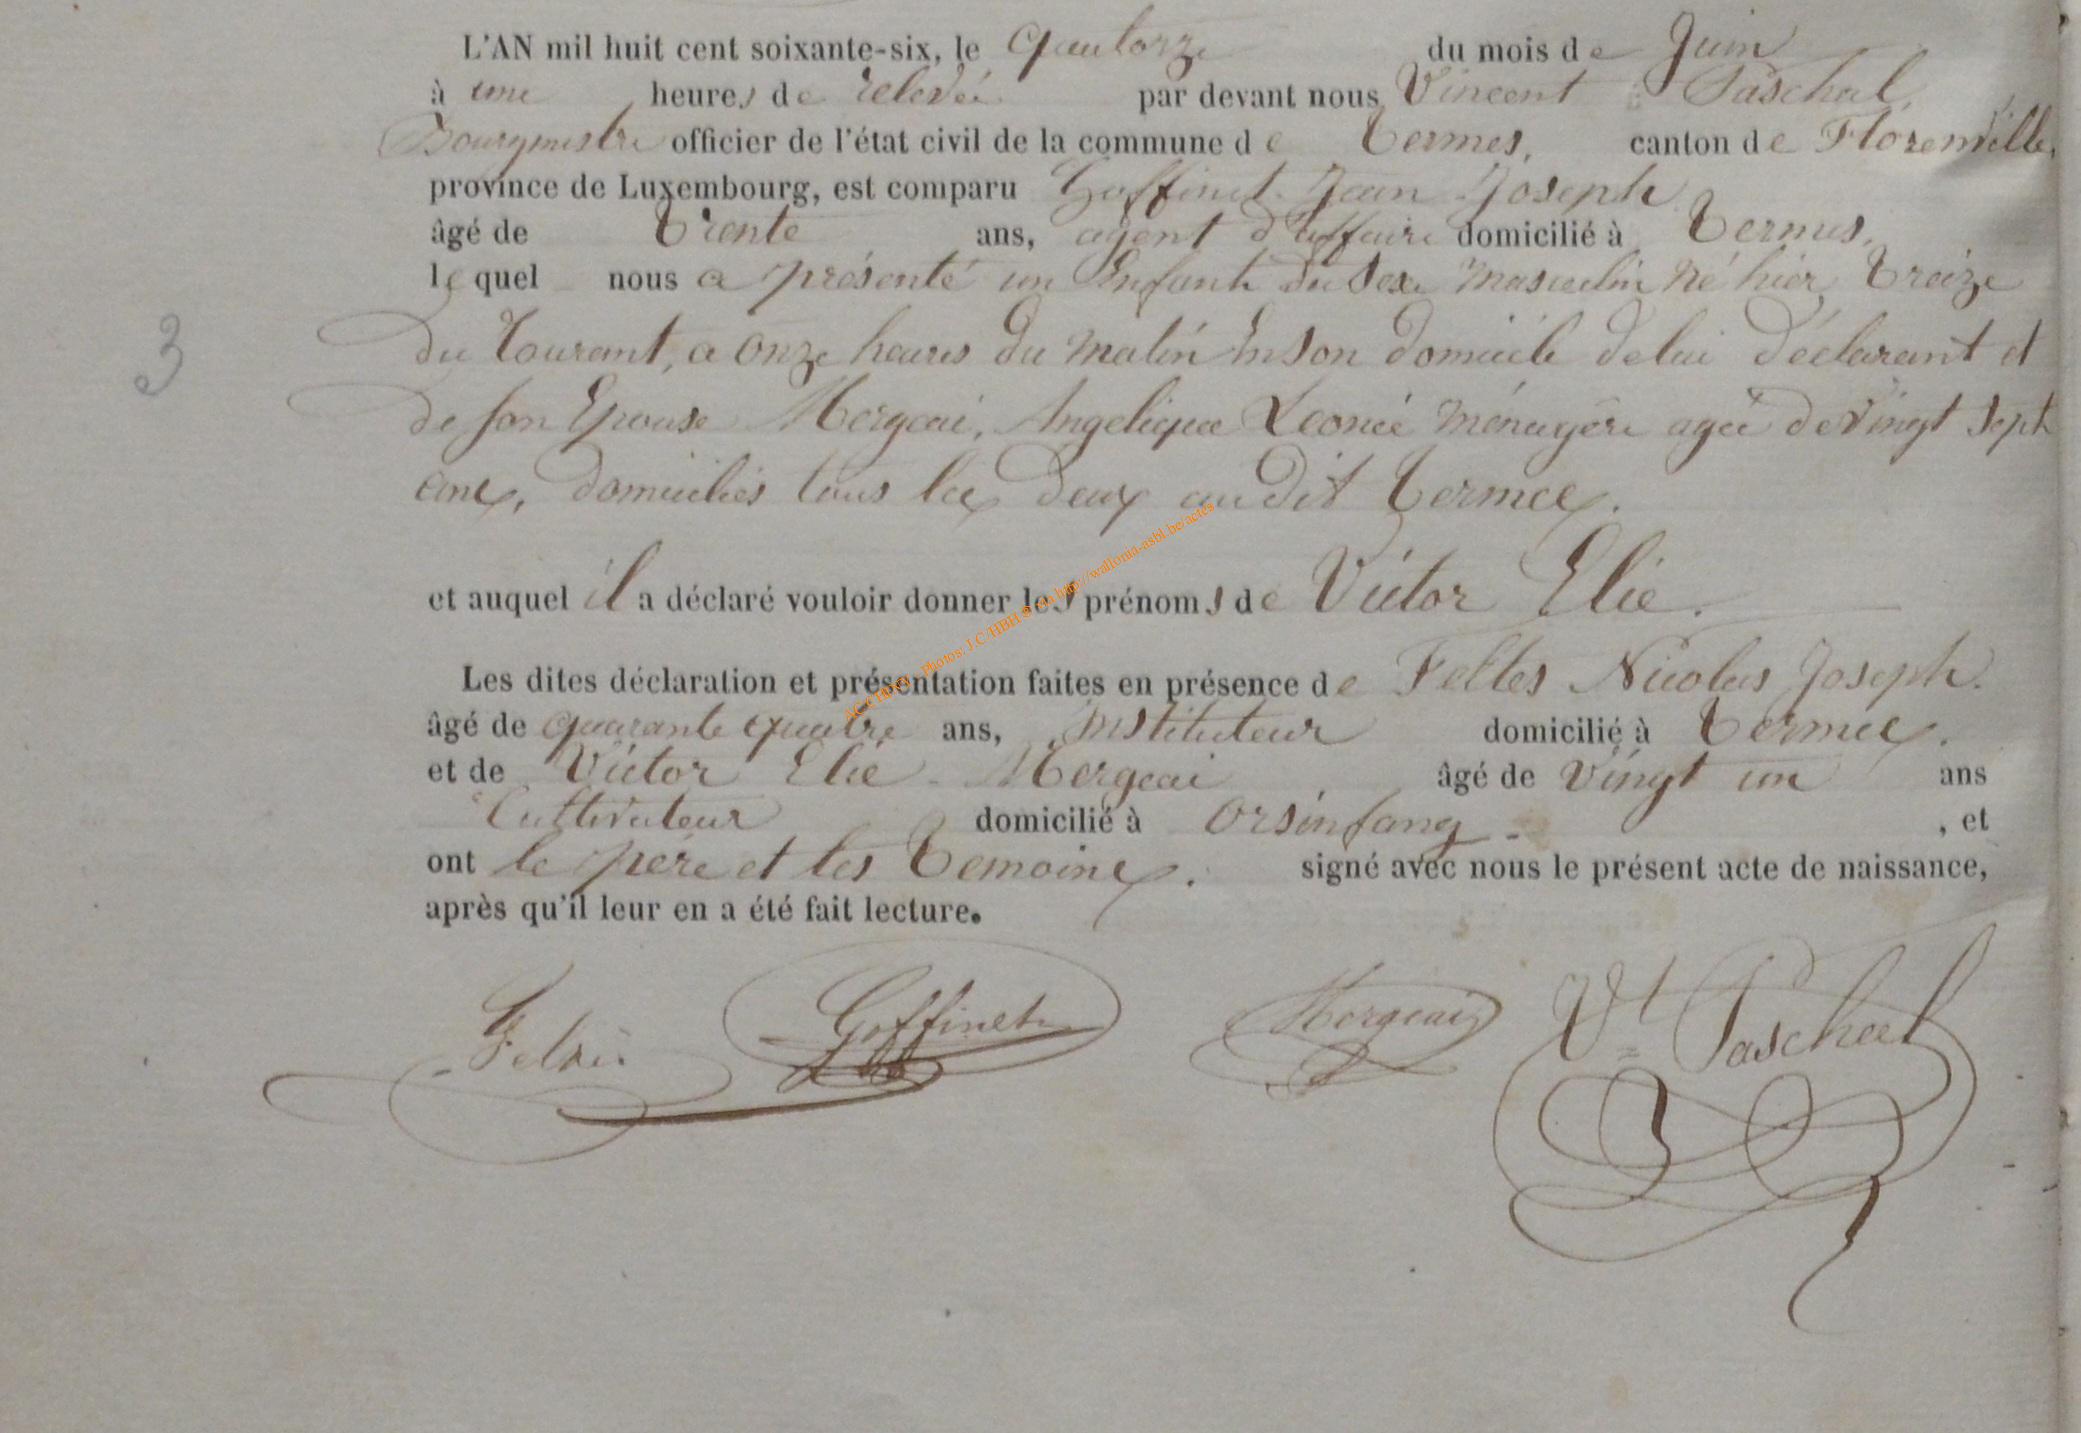 L'AN mil huit cent soixante-six, le quatorze du mois de Juin
à une heures de relevée par devant nous Vincent Paschal,
Bourgmestre officier de l'état civil de la commune de Termes, canton de Florenville,
province de Luxembourg, est comparu Goffinet Jean Joseph
âgé de trente ans, agent d'affaire domicilié à Termes,
lequel nous a présenté un Enfant du sexe masculin né hier, treize
du Courant, a onze heures du matin En son domicile de lui déclarant et
3
de son Epouse Mergeai, Angelique Leonie ménagère agée de vingt sept
ans, domiciliés tous les deux au dit Termes.
et auquel il a déclaré vouloir donner les prénoms de Victor Elie.
Les dites déclaration et présentation faites en présence de Nicolas Joseph.
âgé de quarante quatre ans, instituteur domicilié à Termes.
et de Victor Elie Mergeai âgé de vingt un ans
Cultivateur domicilié à Orsinfang , et
ont le père et les Temoins. signé avec nous le présent acte de naissance,
après qu'il leur en a été fait lecture.
Photos: J.C. HBH © via http://wallonia-asbl.be/actes
Goffinet Mergeai Vt Paschal